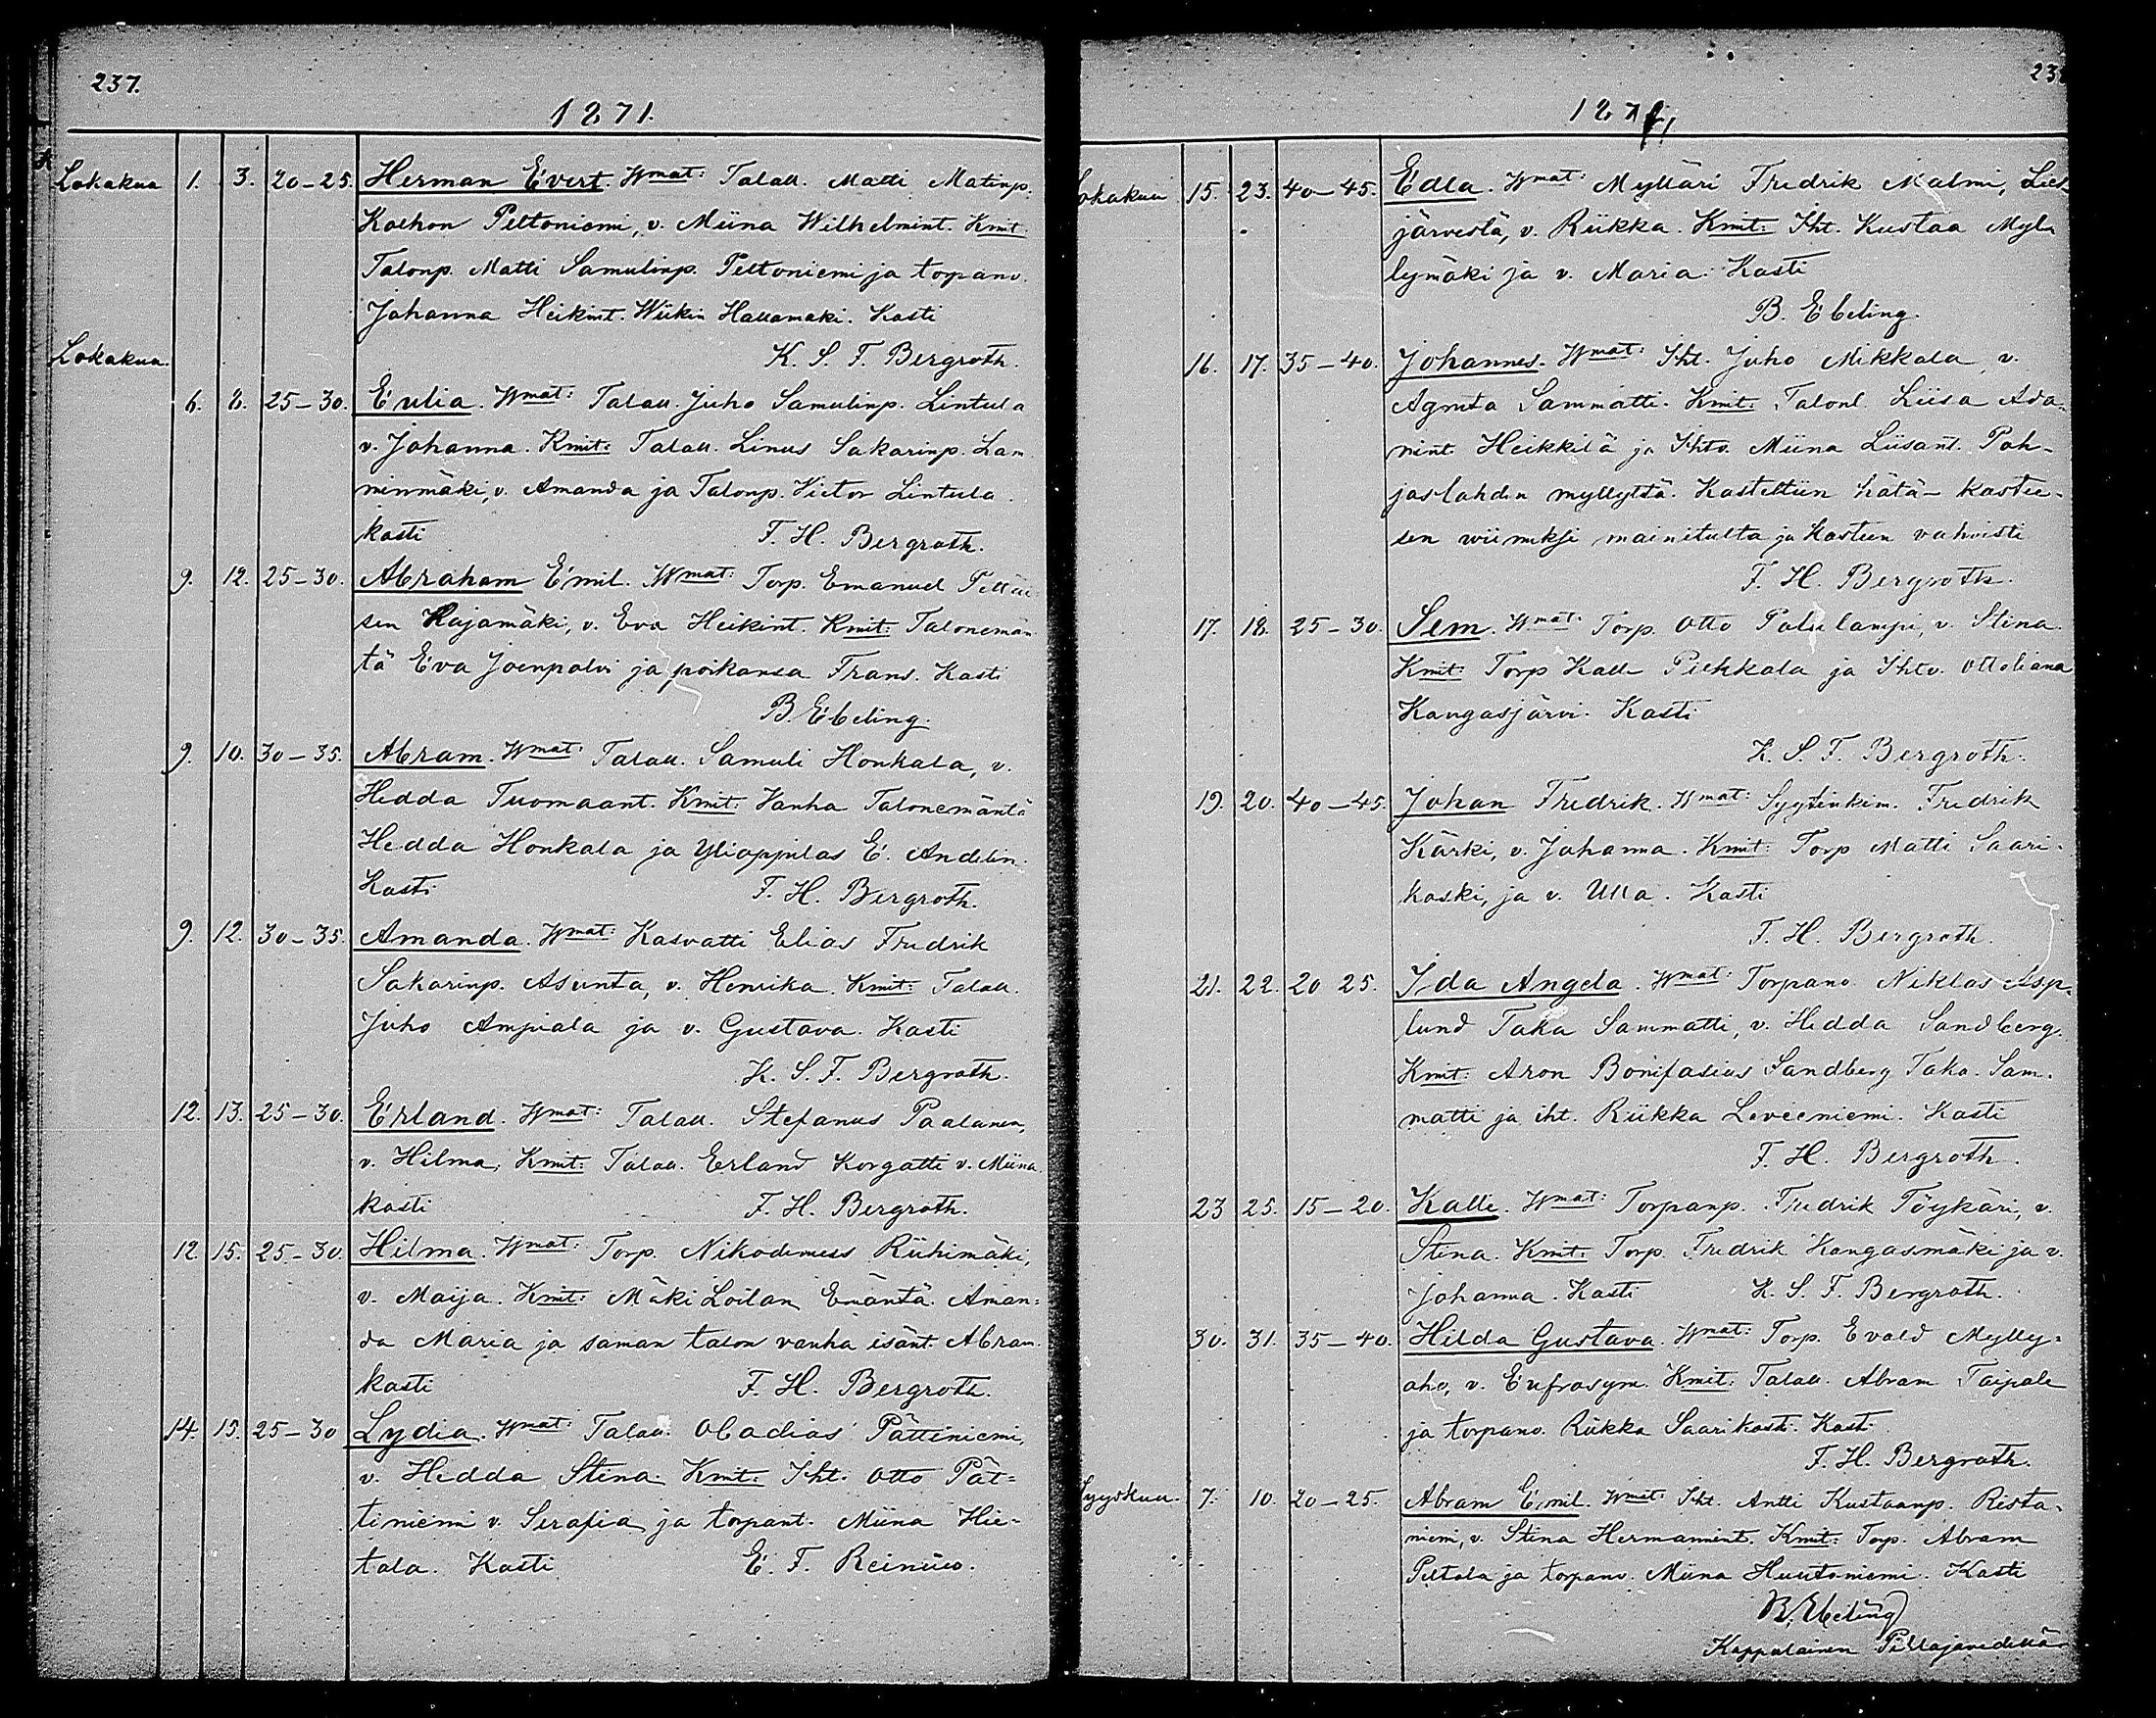 237.
1871.
Lokakuu 1. 3. 20-25. Herman Evert. Wmat: Talall. Matti Matinp.
Koehon Peltoniemi, v. Miina Wilhelmint. Kmit
Talonp. Matti Samulinp. Peltoniemi ja torpanv.
Johanna Heikint. Wiikin Hallamäki. Kasti
Lokakuu. K. S. F. Bergroth.
6. 8. 25-30. Eulia. Wmat: Talall. Juho Samulinp. Lintula
v. Johanna. Kmit: Talall. Linus Sakarinp. Lam
minmäki, v. Amanda ja Talonp. Victor Lintula.
kasti F. H. Bergroth.
9. 12. 25-30. Abraham Emil. Wmat: Torp. Emanuel
sen Rajamäki, v. Eva Heikint. Kmit: Talonemän
tä Eva Joenpolvi ja poikansa Frans. Kasti
B Ebeling.
9. 10. 30-35. Abram. Wmat: Talall. Samuli Honkala, v.
Hedda Tuomaant. Kmit: Vanha Talonemäntä
Hedda Honkala ja Ylioppilas E. Andelin.
Kasti F. H. Bergroth.
9. 12. 30-35. Amanda. Wmat: Kasvatti Elias Fredrik
Sakarinp. Asunta, v. Henrika. Kmit: Talall.
Juho Ampiala ja v. Gustava. Kasti
K. S. F. Bergroth.
12. 13. 25-30. Erland. Wmat: Talall. Stefanus Paalanen,
v. Hilma, Kmit: Talall. Erland Korgatti v. Miina.
kasti F. H. Bergroth.
12. 15. 25-30. Hilma. Wmat: Torp. Nikodemus Riihimäki,
v. Maija. Kmit: Mäki Loilan Emäntä. Aman=
da Maria ja saman talon vanha isänt. Abram.
kasti F. H. Bergroth.
14. 15. 25-30 Lydia. Wmat: Talall. Obadias Pättiniemi,
v. Hedda Stina. Kmit: Iht. Otto Pät=
tiniemi v. Serafia ja torpant. Miina Hie-
tala. Kasti E. F. Reinius.
23
1871,
Lokakuu 15. 23. 40-45. Edla. Wmat: Mylläri Fredrik Malmi, Lies
järvestä, v. Riikka. Kmit: Iht. Kustaa Myl
lymäki ja v. Maria. Kasti
B. Ebeling.
16. 17. 35-40. Johannes. Wmat: Iht. Juho Mikkala, v.
Agneta Sammatti. Kmit: Talonl. Liisa Ada-
mint. Heikkilä ja Ihtv. Miina Liisant. Poh-
jaslahden myllyltä. Kastettiin hätä-kastee-
sen wiimeksi mainitulta ja kasteen vahvisti
F. H. Bergroth.
17. 18. 25-30. Sem. Wmat: Torp. Otto Palulampi, v. Stina.
Kmit: Torp Kalle Piekkala ja Ihtv. Ottoliana
Kangasjärvi. Kasti
K. S. F. Bergroth.
19. 20. 40-45. Johan Fredrik. Wmat: Syytinkim. Fredrik
Kärki, v. Johanna. Kmit: Torp Matti Saari-
koski, ja v. Ulla. Kasti
F. H. Bergroth.
21. 22. 20 25. Ida Angela. Wmat: Torpanv Niklas Asp-
lund Taka Sammatti, v. Hedda Sandberg.
Kmit: Aron Bonifasius Sandberg Taka-Sam-
matti ja iht. Riikka Leveeniemi. Kasti
F. H. Bergroth.
23 25. 15-20. Kalle. Wmat: Torpanp. Fredrik Töykäri, v.
Stina. Kmit: Torp. Fredrik Kangasmäki ja v.
Johanna. Kasti K. S. F. Bergroth.
30. 31. 35-40. Hilda Gustava. Wmat: Torp. Evald Mylly-
aho, v. Eufrosym. Kmit: Talall. Abram Taipale
ja torpanv. Riikka Saarikoski. Kasti
F. H. Bergroth.
Syyskuu. 7. 10. 20-25. Abram Emil. Wmat: Iht. Antti Kustaanp. Rista-
niemi, v. Stina Hermannint. Kmit: Torp. Abram
Peltola ja torpanv. Miina Huutoniemi. Kasti
B. Ebeling
Kappalainen Pihlajavedellä